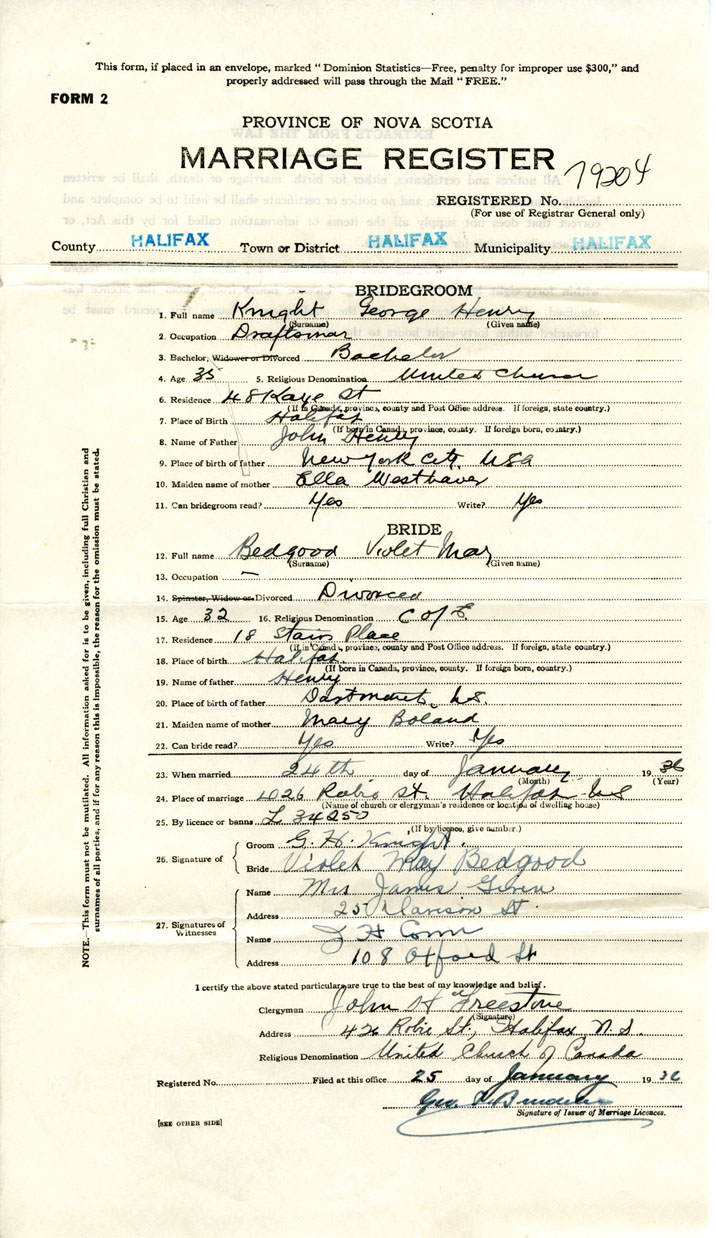 This form, if placed in an envelope, marked “Dominion Statistics—Free, penalty for improper use $300,” and
properly addressed will pass through the Mail “FREE.”
FORM 2
PROVINCE OF NOVA SCOTIA
MARRIAGE REGISTER
79204
REGISTERED No.
(For use of Registrar General only)
County HALIFAX Town or District HALIFAX Municipality HALIFAX
BRIDEGROOM
1. Full name Knight George Henry
(Surname) (Given name)
2. Occupation Draftsman
3. Bachelor, Widower or Divorced Bachelor
4. Age 35 5. Religious Denomination United Church
6. Residence 48 Kaye St
(If in Canada, province, county and Post Office address. If foreign, state country.)
7. Place of Birth Halifax
(If born in Canada, province, county. If foreign born, country.)
8. Name of Father John Henry
9. Place of birth of father New York City, USA
10. Maiden name of mother Ella Westhaver
11. Can bridegroom read? Yes Write? Yes
BRIDE
12. Full name Bedgood Violet May
(Surname) (Given name)
13. Occupation —
14. Spinster, Widow or Divorced Divorced
15. Age 32 16. Religious Denomination C of E.
17. Residence 18 Stairs Place
(If in Canada, province, county and Post Office address. If foreign, state country.)
18. Place of birth Halifax
(If born in Canada, province, county. If foreign born, country.)
19. Name of father Henry
20. Place of birth of father Dartmouth, N.S.
21. Maiden name of mother Mary Boland
22. Can bride read? Yes Write? Yes
23. When married 24th day of January 19 36
(Month) (Year)
24. Place of marriage Robie St. Halifax NS
(Name of church or clergyman's residence or location of dwelling house)
25. By licence or banns L 34250
(If by licence, give number.)
26. Signature of
Groom G. H. Knight.
Bride Violet May Bedgood
27. Signatures of Witnesses
Name Mrs James
Address 25 St.
Name J H
Address 108 Oxford St
I certify the above stated particulars are true to the best of my knowledge and belief.
Clergyman John H Freestone
(Signature)
Address 426 Robie St., Halifax N.S.
Religious Denomination United Church of Canada
Registered No. Filed at this office 25 day of January 19 36
Geo.
Signature of Issuer of Marriage Licences.
[SEE OTHER SIDE]
NOTE.—This form must not be mutilated. All information asked for is to be given, including full Christian and
surnames of all parties, and if for any reason this is impossible, the reason for the omission must be stated.